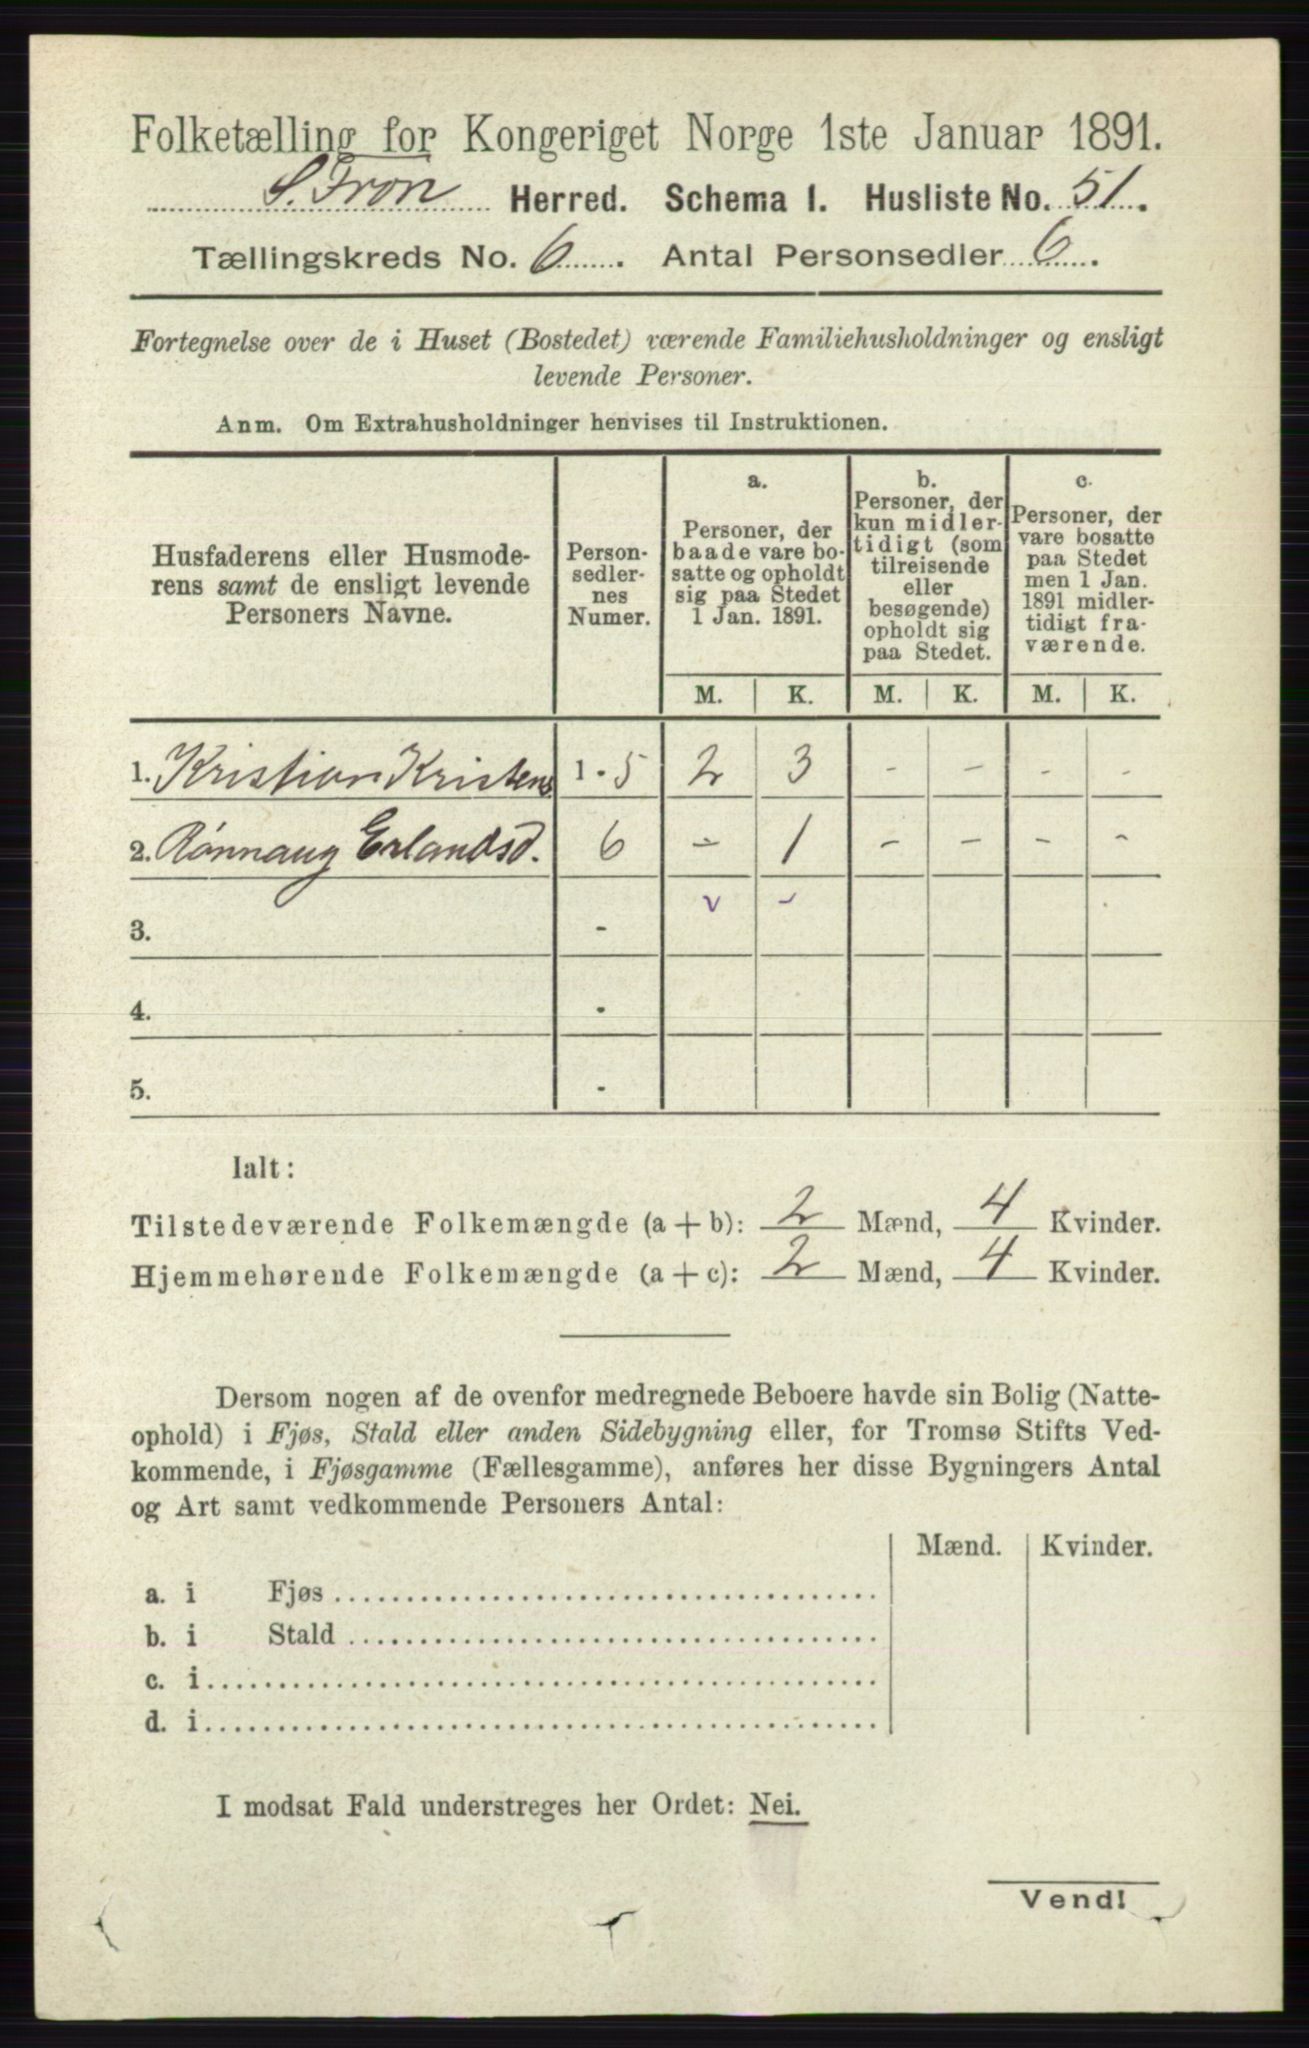 Folketælling for Kongeriget Norge 1ste Januar 1891.
S. Fron Herred. Schema 1. Husliste No. 51.
Tællingskreds No. 6. Antal Personsedler 6.
Fortegnelse over de i Huset (Bostedet) værende Familiehusholdninger og ensligt
levende Personer.
Anm. Om Extrahusholdninger henvises til Instruktionen.
Husfaderens eller Husmode-
rens samt de ensligt levende
Personers Navne.
Person-
sedler-
nes
Numer.
a.
Personer, der
baade vare bo-
satte og opholdt
sig paa Stedet
1 Jan. 1891.
b.
Personer, der
kun midler-
tidigt (som
tilreisende
eller
besøgende)
opholdt sig
paa Stedet.
c.
Personer, der
vare bosatte
paa Stedet
men 1 Jan.
1891 midler-
tidigt fra-
værende.
M. K. M. K. M. K.
1. Kristian Kristens 1 - 5 2 3 - - - -
2. Rønnaug Erlandsd. 6 - 1 - - - -
3. -
4. -
5. -
Ialt:
Tilstedeværende Folkemængde (a + b): 2 Mænd, 4 Kvinder.
Hjemmehørende Folkemængde (a + c): 2 Mænd, 4 Kvinder.
Dersom nogen af de ovenfor medregnede Beboere havde sin Bolig (Natte-
ophold) i Fjøs, Stald eller anden Sidebygning eller, for Tromsø Stifts Ved-
kommende, i Fjøsgamme (Fællesgamme), anføres her disse Bygningers Antal
og Art samt vedkommende Personers Antal:
Mænd. Kvinder.
a. i Fjøs
b. i Stald
c. i
d. i
I modsat Fald understreges her Ordet: Nei.
Vend!